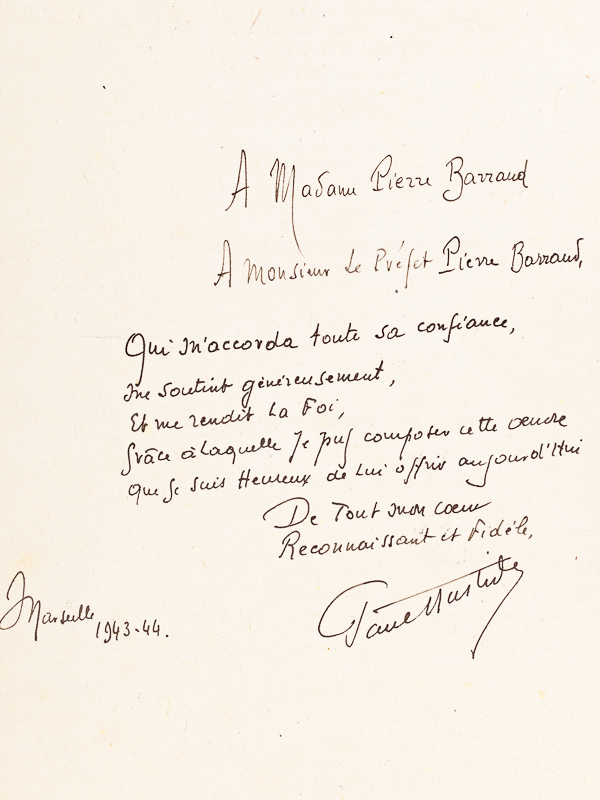 A Madame Pierre Barraud
A Monsieur Le Préfet Pierre Barraud,
Qui m'accorda toute sa confiance,
me soutint généreusement,
Et me rendit La Foi,
Grâce à Laquelle Je pus composer cette oeuvre
Que Je suis Heureux de Lui offrir aujourd'Hui
De Tout mon coeur
Reconnaissant et Fidèle,
Marseille
1943-44.